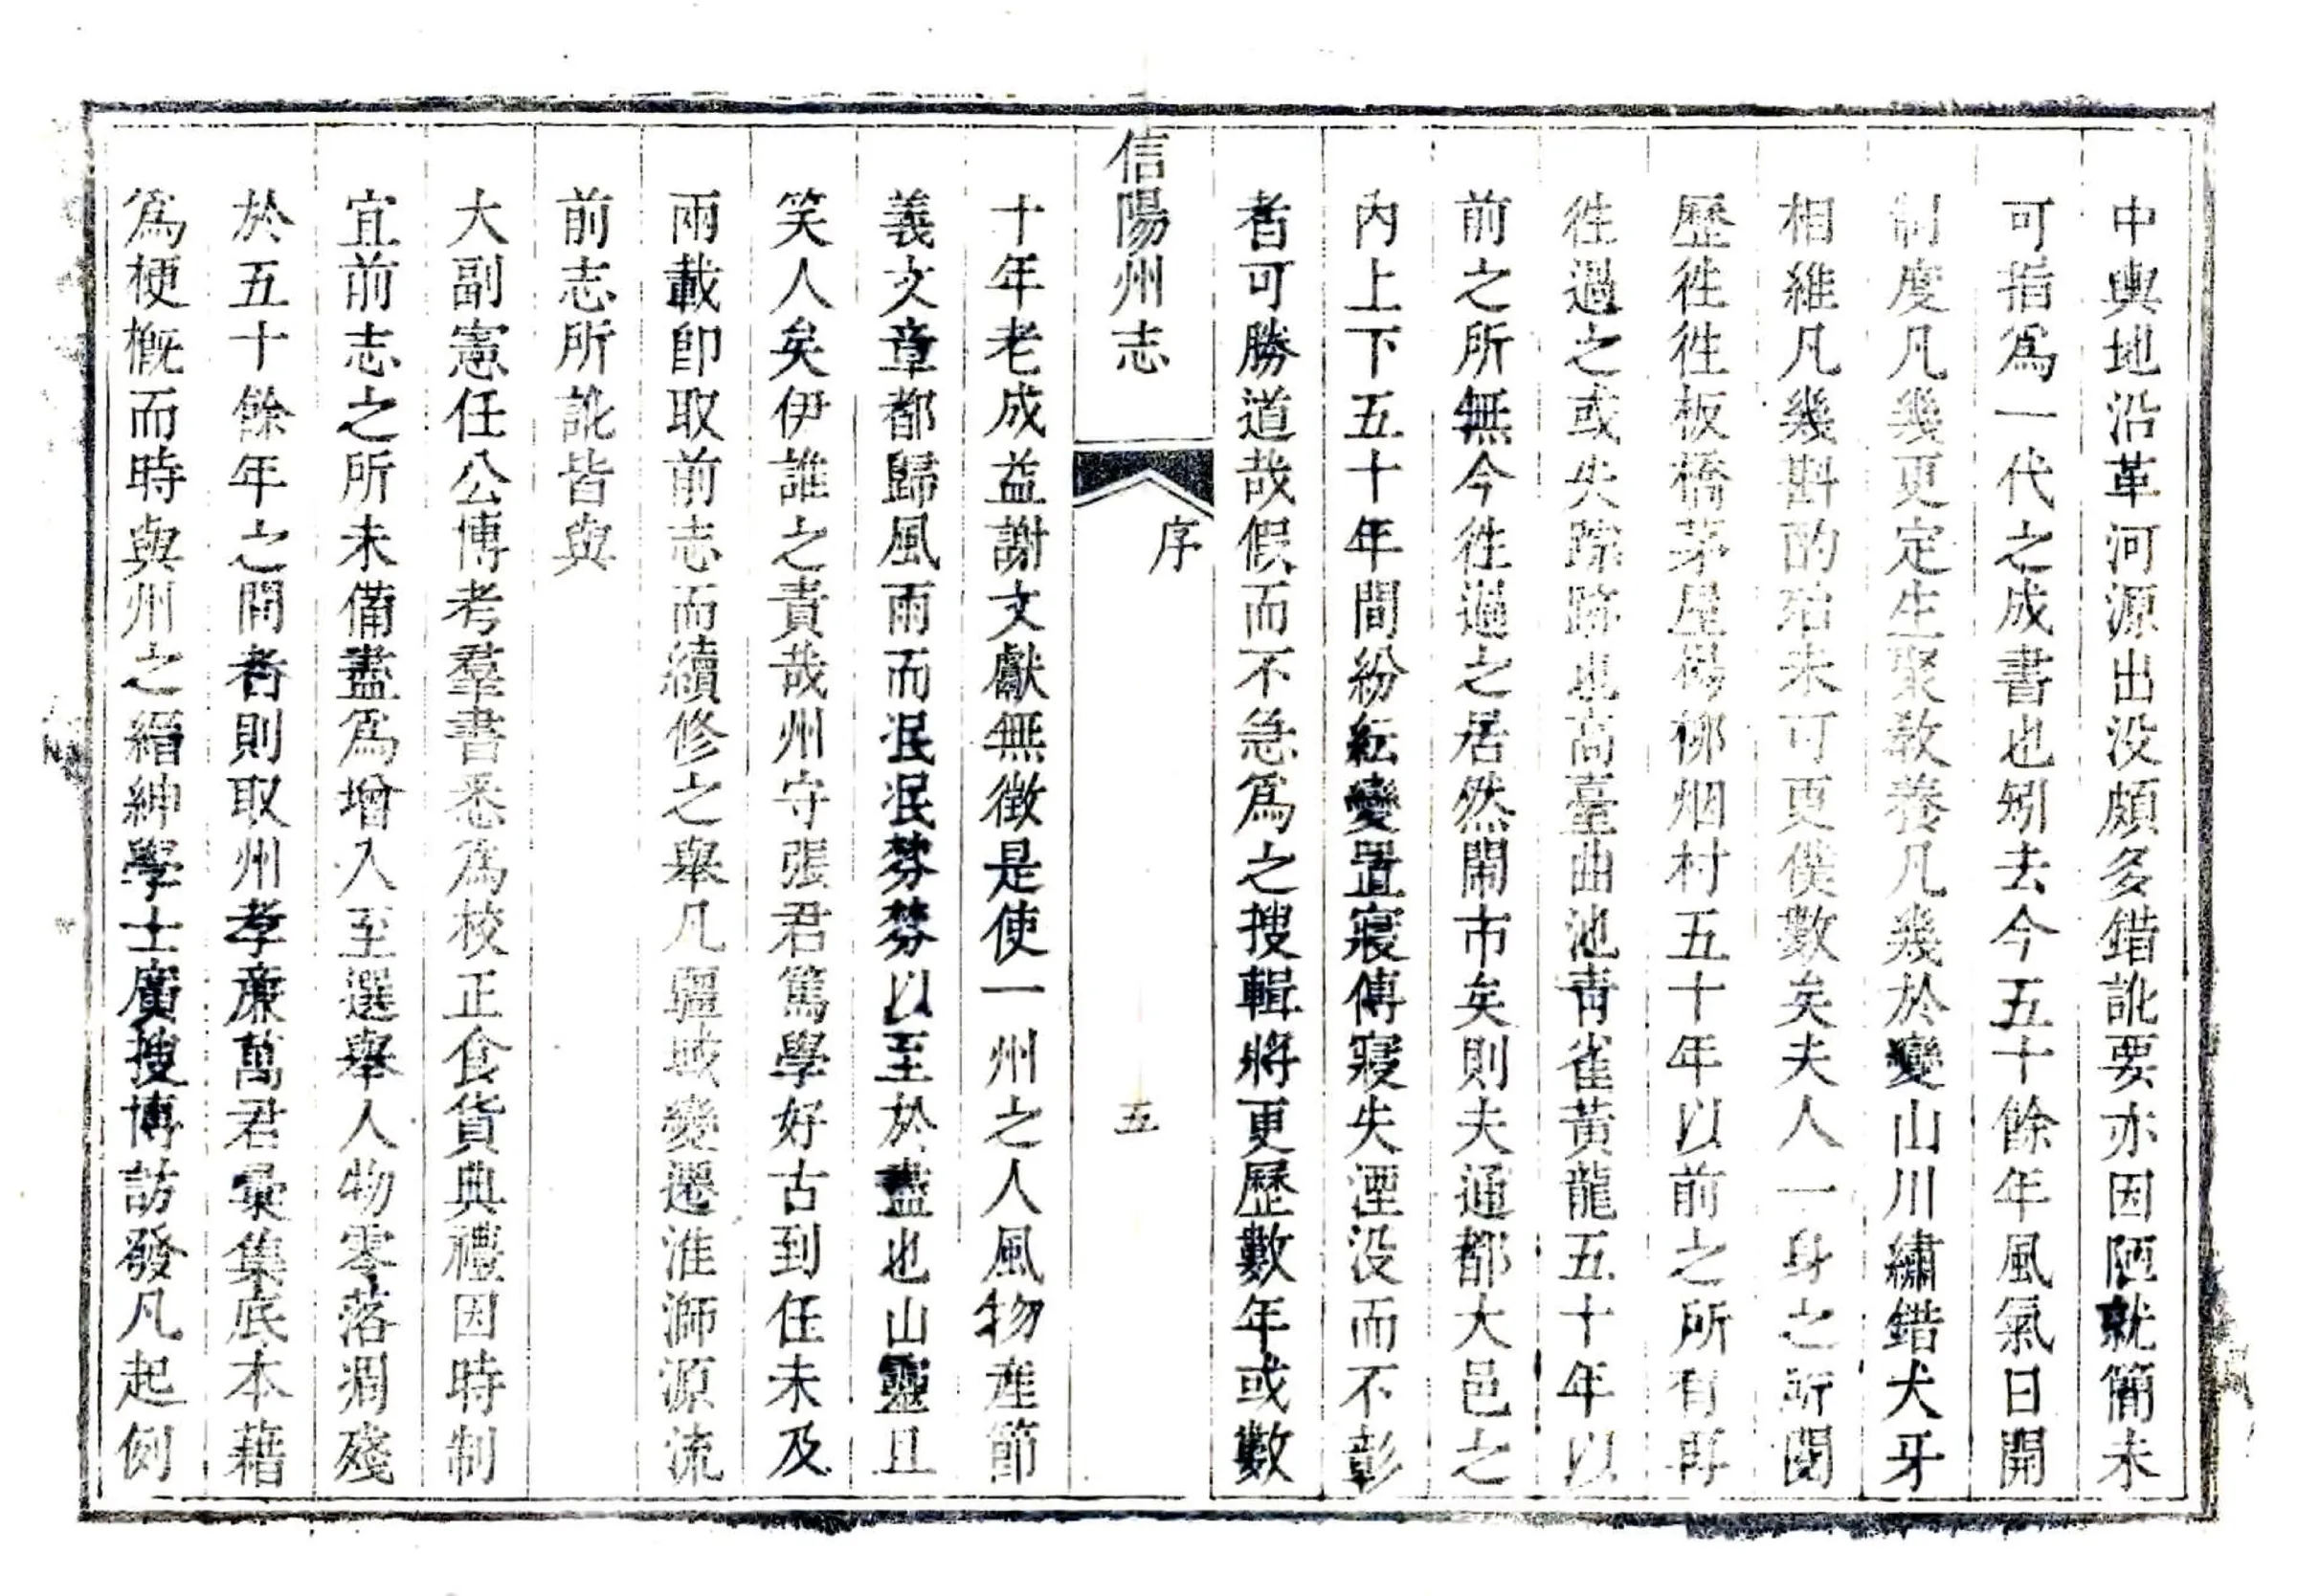 中輿地沿革河源出没頗多錯訛要亦因陋就簡未
可指爲一代之成書也矧去今五十餘年風氣日開
制度凡幾更定生聚教養凡幾於變山川繡錯犬牙
相維凡幾斟酌殆未可更僕數矣夫人一身之所閱
歷徃徃板橋茅屋楊栁烟村五十年以前之所有再
徃過之或失踪跡也高臺曲池青雀黃龍五十年以
前之所無今徃過之居然閙市矣則夫通都大邑之
内上下五十年間紛紜變置寖傳寖失湮没而不彰
者可勝道哉假而不急爲之搜輯將更歷數年或數
信陽州志
序
五
十年老成益謝文獻無徵是使一州之人風物産節
義文章都歸風雨而泯泯棼棼以至於盡也山靈且
笑人矣伊誰之責哉州守張君篤學好古到任未及
兩載卽取前志而續修之舉凡疆域變遷淮溮源流
前志所訛皆與
大副憲任公博考羣書悉爲校正食貨典禮因時制
宜前志之所未備盡爲增入至選舉人物零落凋殘
於五十餘年之間者則取州孝廉萬君彙集底本藉
爲梗槪而時與州之縉紳學士廣搜博訪發凡起例